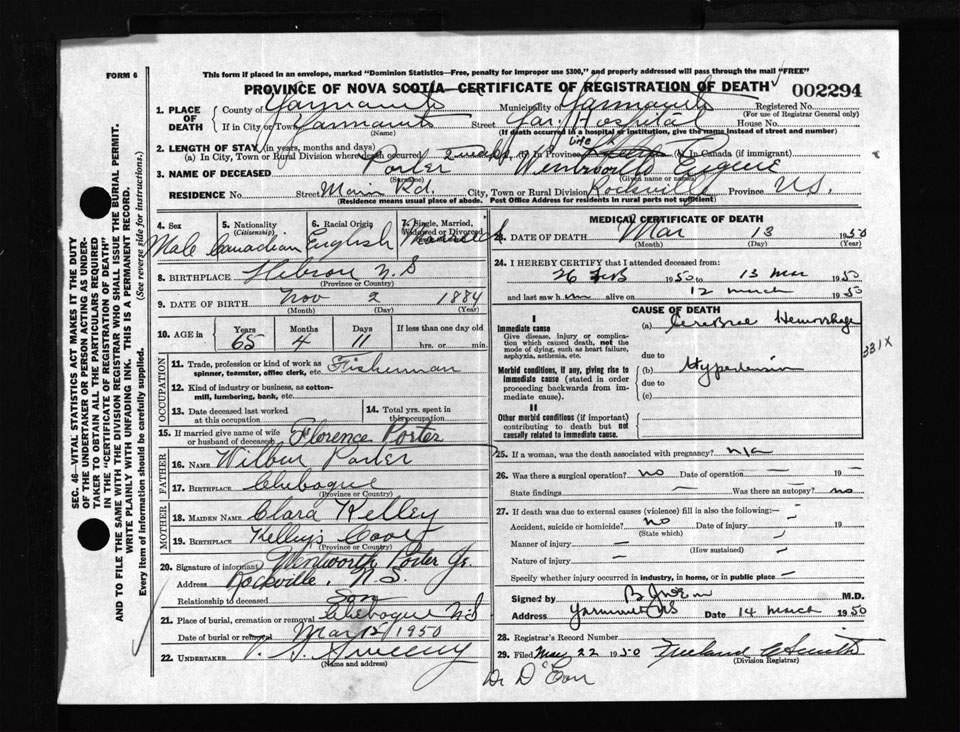 FORM 6
This form if placed in an envelope, marked "Dominion Statistics—Free, penalty for improper use $300," and properly addressed will pass through the mail "FREE"
PROVINCE OF NOVA SCOTIA—CERTIFICATE OF REGISTRATION OF DEATH
002294
1. PLACE OF DEATH County of Yarmouth Municipality of Yarmouth Registered No. (For use of Registrar General only)
If in City or Town Yarmouth (Name) Street Yar. Hospital House No.
(If death occurred in a hospital or institution, give the name instead of street and number)
2. LENGTH OF STAY (in years, months and days)
(a) In City, Town or Rural Division where death occurred 2 (b) In Province Life (c) In Canada (if immigrant)
3. NAME OF DECEASED Porter (Surname) Wentworth Eugene (Given name or names)
RESIDENCE No Street Main Rd. City, Town or Rural Division Rockville Province N.S.
(Residence means usual place of abode. Post Office Address for residents in rural parts not sufficient)
SEC. 46—VITAL STATISTICS ACT MAKES IT THE DUTY
OF THE UNDERTAKER OR PERSON ACTING AS UNDER-
TAKER TO OBTAIN ALL THE PARTICULARS REQUIRED
IN THE "CERTIFICATE OF REGISTRATION OF DEATH"
AND TO FILE THE SAME WITH THE DIVISION REGISTRAR WHO SHALL ISSUE THE BURIAL PERMIT.
WRITE PLAINLY WITH UNFADING INK. THIS IS A PERMANENT RECORD.
Every item of information should be carefully supplied. (See reverse side for instructions.)
4. Sex Male
5. Nationality (Citizenship) Canadian
6. Racial Origin English
7. Single, Married, Widowed or Divorced Married
8. BIRTHPLACE Hebron N.S (Province or Country)
9. DATE OF BIRTH Nov (Month) 2 (Day) 1884 (Year)
10. AGE in Years 65 Months 4 Days 11 If less than one day old hrs. or min.
OCCUPATION
11. Trade, profession or kind of work as spinner, teamster, office clerk, etc. Fisherman
12. Kind of industry or business, as cotton-mill, lumbering, bank, etc.
13. Date deceased last worked at this occupation
14. Total yrs. spent in this occupation
15. If married give name of wife or husband of deceased Florence Porter
FATHER
16. NAME Wilbur Porter
17. BIRTHPLACE Chebogue (Province or Country)
MOTHER
18. MAIDEN NAME Clara Kelley
19. BIRTHPLACE Kelleys Cove (Province or Country)
20. Signature of informant Wentworth Porter Jr.
Address Rockville, N.S.
Relationship to deceased Son
21. Place of burial, cremation or removal Chebogue N.S
Date of burial or removal Mar 15 1950
22. UNDERTAKER V. S. Sweeny (Name and address)
MEDICAL CERTIFICATE OF DEATH
23. DATE OF DEATH Mar (Month) 13 (Day) 1950 (Year)
24. I HEREBY CERTIFY that I attended deceased from:
26 Feb 1950 to 13 Mar 1950
and last saw him alive on 12 march 1950
CAUSE OF DEATH
I
Immediate cause
Give disease, injury or complication which caused death, not the mode of dying, such as heart failure, asphyxia, asthenia, etc.
(a) Cerebral Hemorrhage
due to
331X
Morbid conditions, if any, giving rise to immediate cause (stated in order proceeding backwards from immediate cause).
(b) Hypertension
due to
(c)
II
Other morbid conditions (if important) contributing to death but not causally related to immediate cause.
25. If a woman, was the death associated with pregnancy? n/a
26. Was there a surgical operation? no Date of operation — 19 —
State findings — Was there an autopsy? no
27. If death was due to external causes (violence) fill in also the following:—
Accident, suicide or homicide? no (State which) Date of injury — 19
Manner of injury — (How sustained)
Nature of injury —
Specify whether injury occurred in industry, in home, or in public place —
Signed by M.D.
Address Yarmouth NS Date 14 march 1950
28. Registrar's Record Number
29. Filed May 22 1950 Smith (Division Registrar)
Dr D'Eon